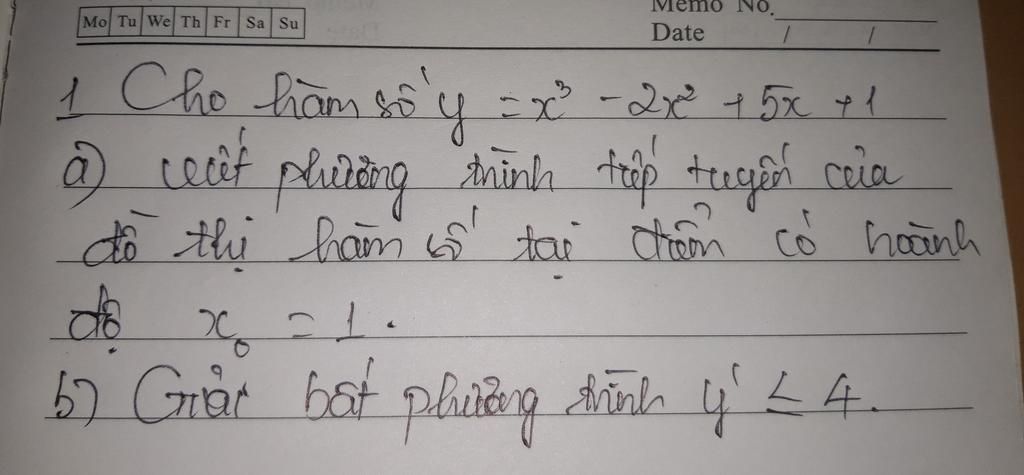 Memo No.
Mo Tu We Th Fr Sa Su
Date / /
1 Cho hàm số y = x³ - 2x² + 5x + 1
a) viết phương trình tiếp tuyến của
đồ thị hàm số tại điểm có hoành
độ x₀ = 1.
b) Giải bất phương trình y' ≤ 4.